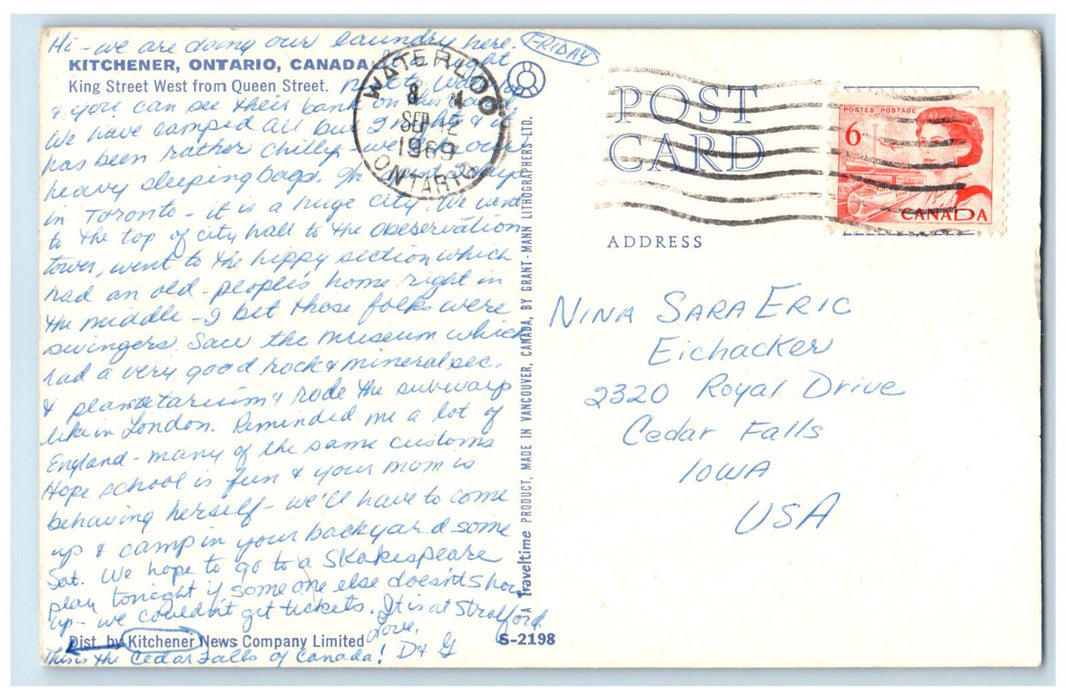 Hi - we are doing our laundry here.
FRIDAY
KITCHENER, ONTARIO, CANADA right
King Street West from Queen Street. next to
& you can see their bank on this card.
We have camped all but 2 nights & it
has been rather chilly - we love our
heavy sleeping bags. In
in Toronto - it is a huge city. We went
to the top of city hall to the observation
tower, went to the hippy section which
had an old-people's home right in
the middle - I bet those folks were
swingers. Saw the museum which
had a very good rock & mineral sec.
& planetarium & rode the subway
like in London. Reminded me a lot of
England - many of the same customs
Hope school is fun & your mom is
behaving herself - we'll have to come
up & camp in your backyard some
Sat. We hope to go to a Skakespeare
play tonight if someone else doesn't show
up - we couldn't get tickets. It is at Stratford.
Love,
Dist. by Kitchener News Company Limited
This is the Cedar Falls of Canada! D & G
S-2198
A Traveltime PRODUCT, MADE IN VANCOUVER, CANADA, BY GRANT-MANN LITHOGRAPHERS LTD.
WATERLOO
SEP 12
1969
ONTARIO
POST
CARD
ADDRESS
POSTES POSTAGE
6
CANADA
NINA SARA ERIC
Eichacker
2320 Royal Drive
Cedar Falls
IOWA
USA